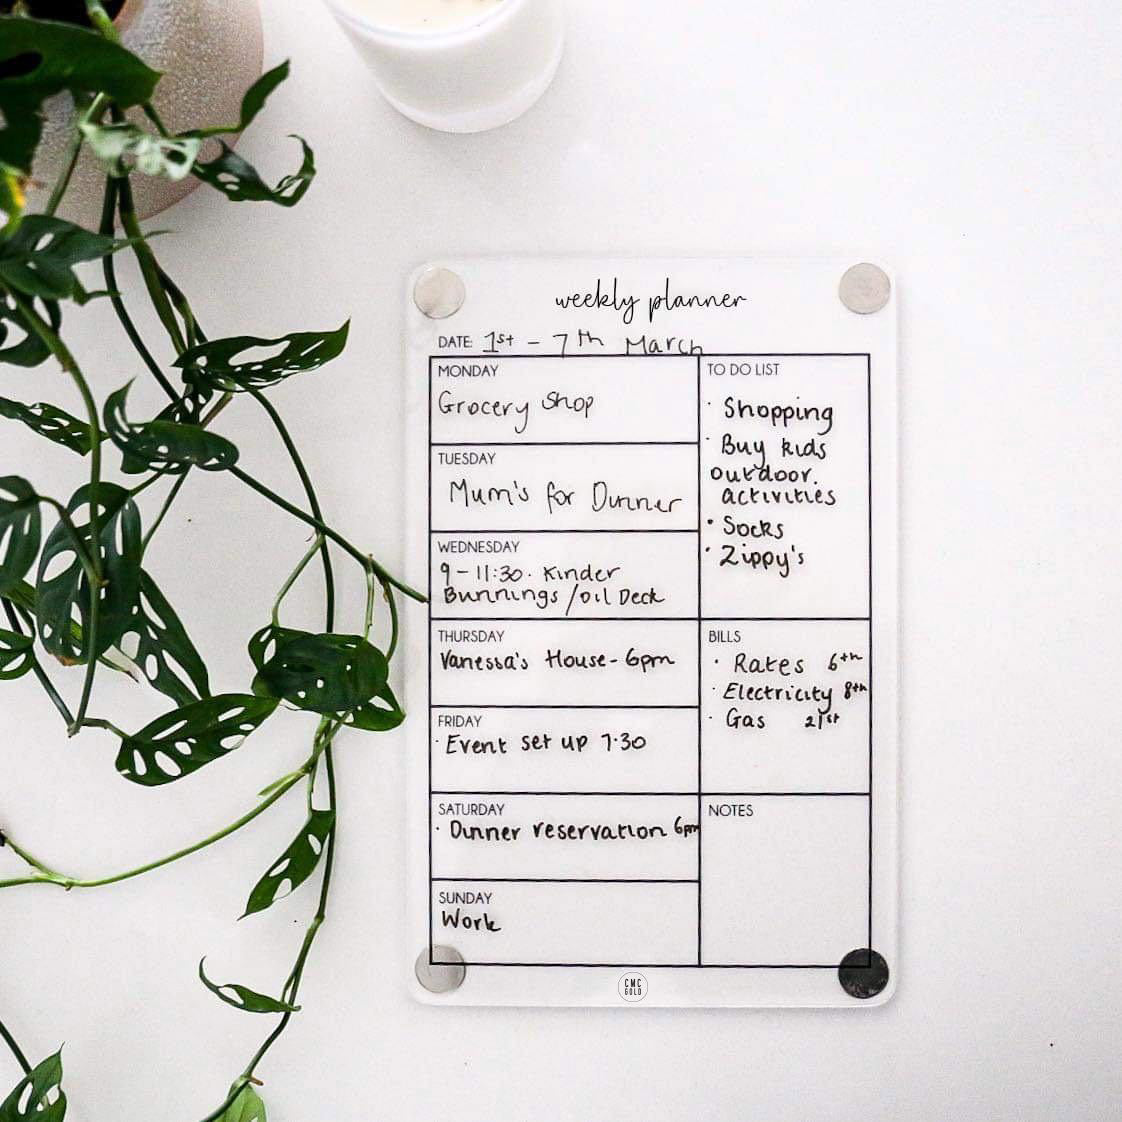 weekly planner
DATE: 1st - 7th March
MONDAY
Grocery Shop
TUESDAY
Mum's for Dinner
WEDNESDAY
9-11:30. Kinder
Bunnings/Oil Deck
THURSDAY
Vanessa's House - 6pm
FRIDAY
· Event set up 7·30
SATURDAY
· Dinner reservation 6pm
SUNDAY
Work
TO DO LIST
· Shopping
· Buy kids
outdoor.
activities
• Socks
• Zippy's
BILLS
· Rates 6th
· Electricity 8th
· Gas 21st
NOTES
CMC
GOLD